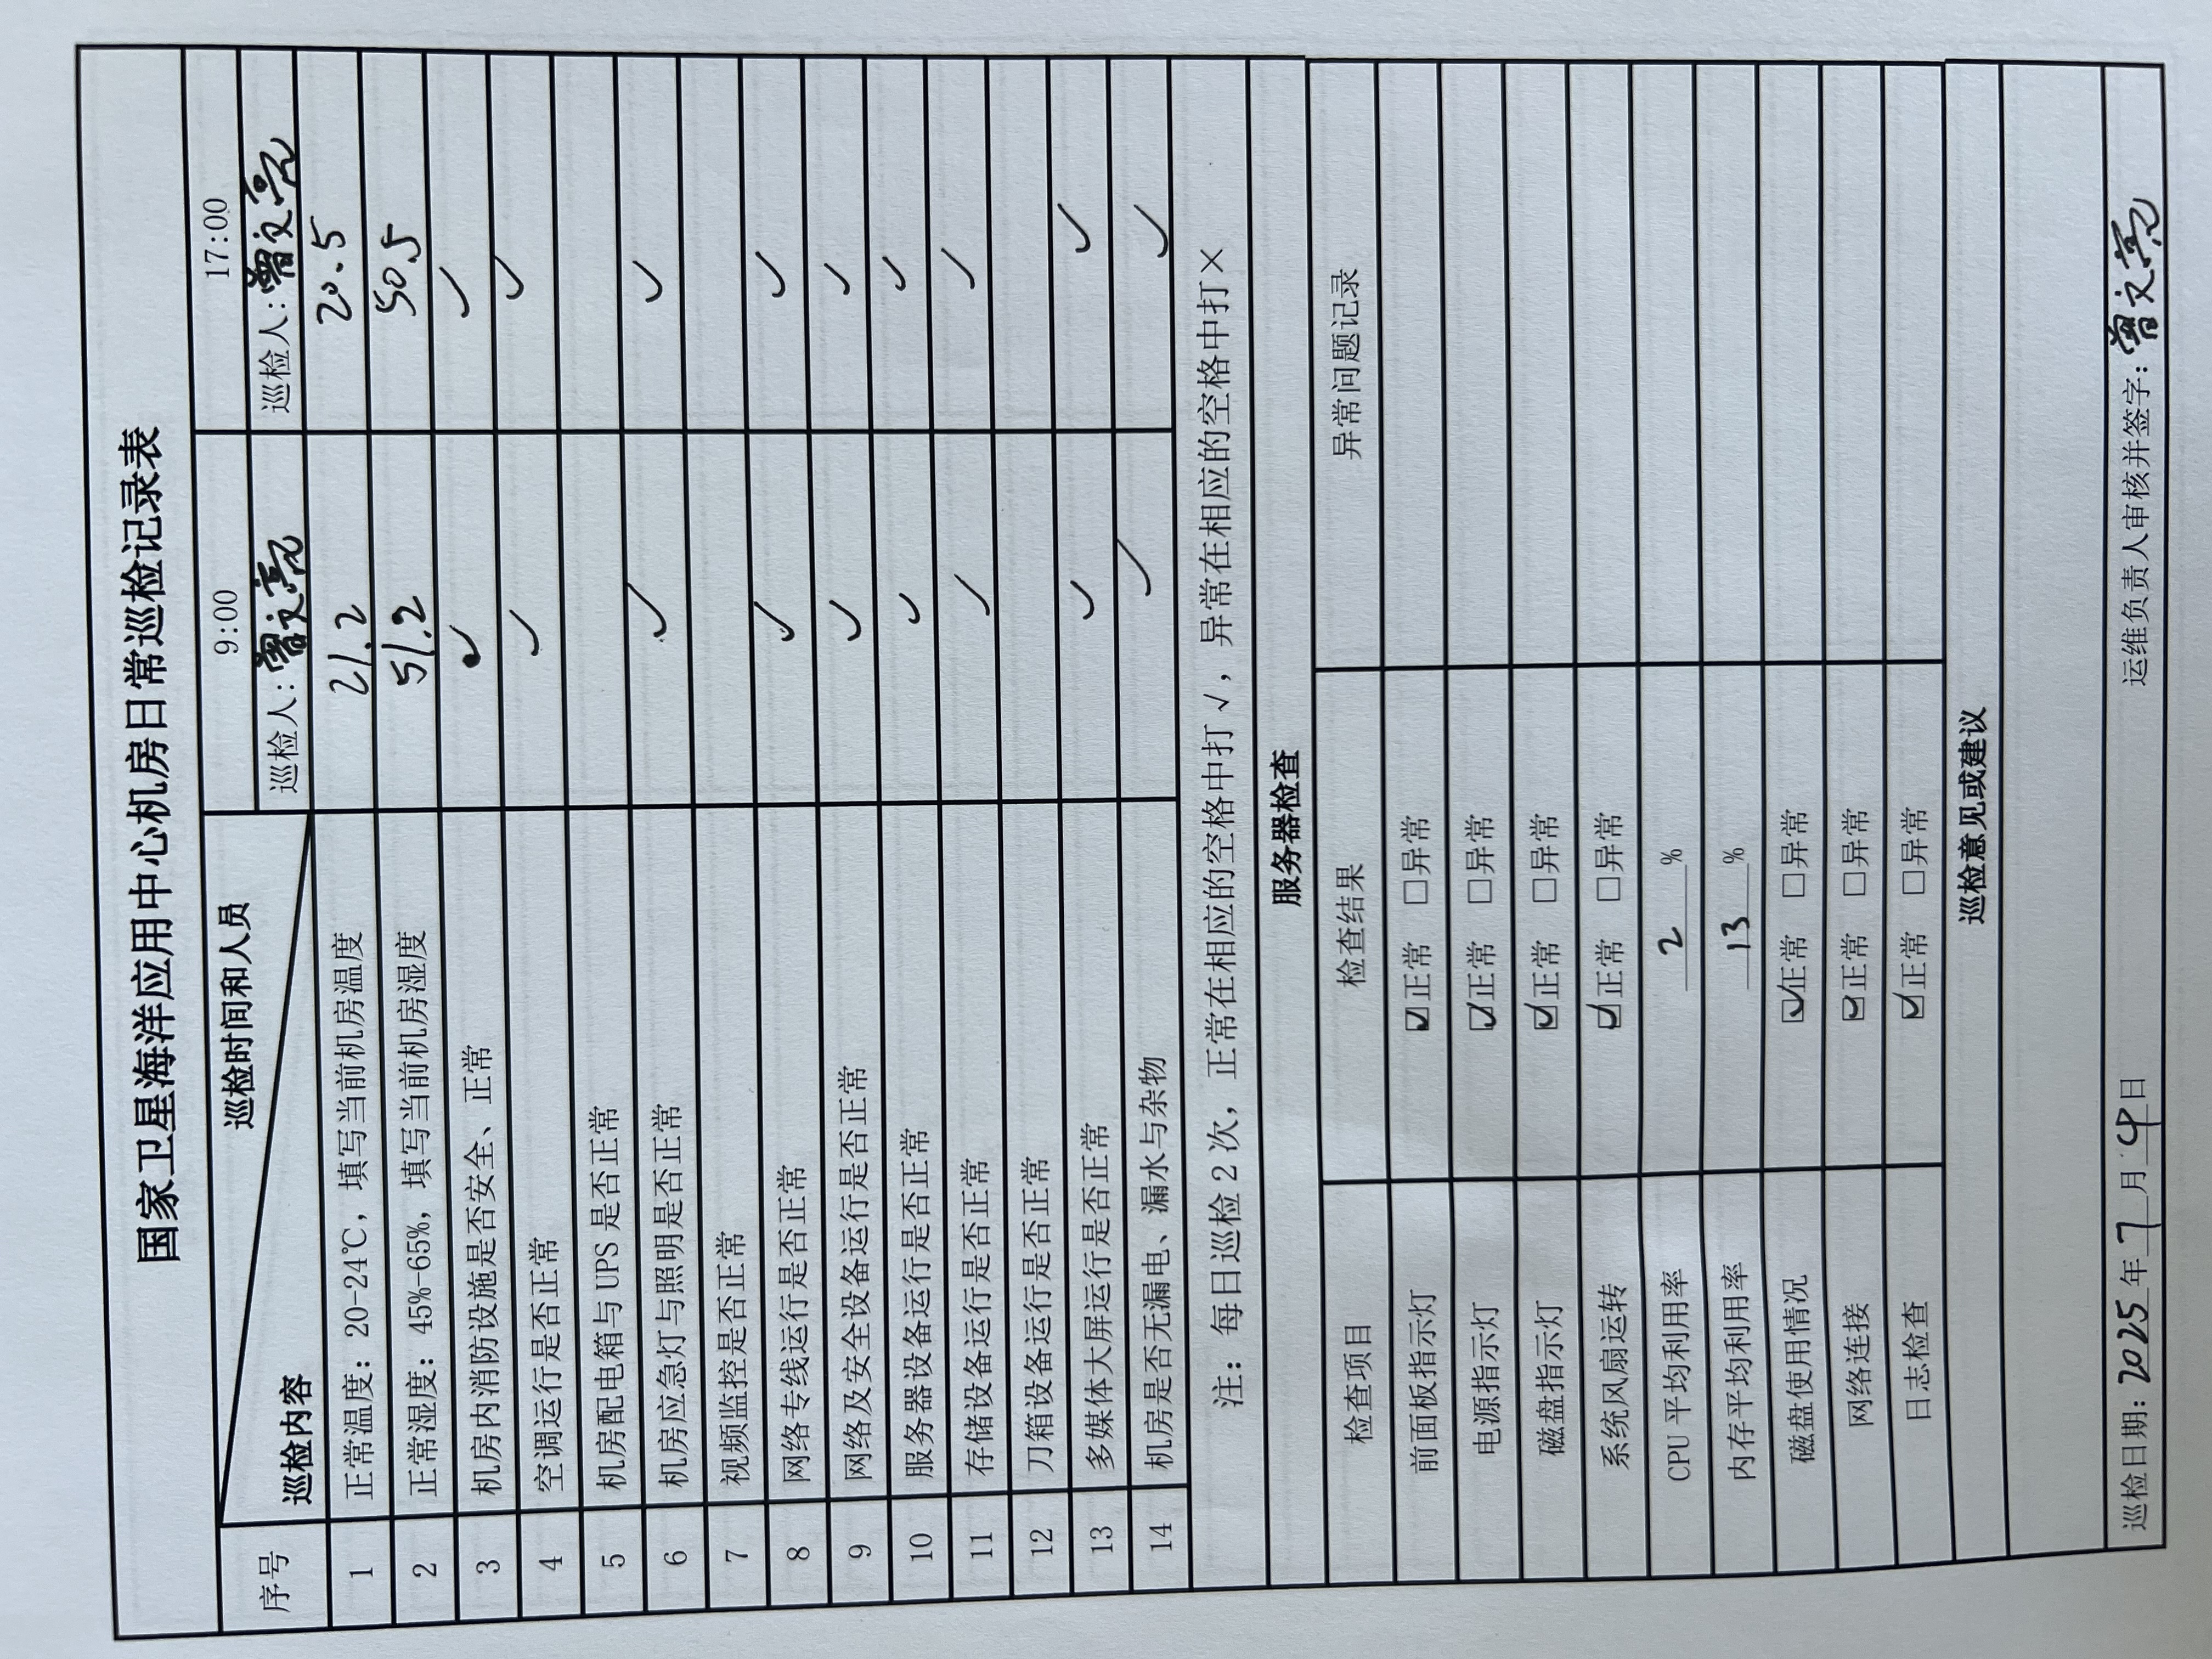 国家卫星海洋应用中心机房日常巡检记录表
序号 巡检时间和人员 巡检内容 9:00 17:00
巡检人：曾文亮 巡检人：曾文亮
1 正常温度：20-24℃，填写当前机房温度 21.2 20.5
2 正常湿度：45%-65%，填写当前机房湿度 51.2 50.5
3 机房内消防设施是否安全、正常 ✓ ✓
4 空调运行是否正常 ✓ ✓
5 机房配电箱与 UPS 是否正常
6 机房应急灯与照明是否正常 ✓ ✓
7 视频监控是否正常
8 网络专线运行是否正常 ✓ ✓
9 网络及安全设备运行是否正常 ✓ ✓
10 服务器设备运行是否正常 ✓ ✓
11 存储设备运行是否正常 ✓ ✓
12 刀箱设备运行是否正常
13 多媒体大屏运行是否正常 ✓ ✓
14 机房是否无漏电、漏水与杂物 ✓ ✓
注：每日巡检 2 次，正常在相应的空格中打 √，异常在相应的空格中打×
服务器检查
检查项目 检查结果 异常问题记录
前面板指示灯 ☑正常 □异常
电源指示灯 ☑正常 □异常
磁盘指示灯 ☑正常 □异常
系统风扇运转 ☑正常 □异常
CPU 平均利用率 2 %
内存平均利用率 13 %
磁盘使用情况 ☑正常 □异常
网络连接 ☑正常 □异常
日志检查 ☑正常 □异常
巡检意见或建议
巡检日期：2025 年 7 月 4 日 运维负责人审核并签字：曾文亮